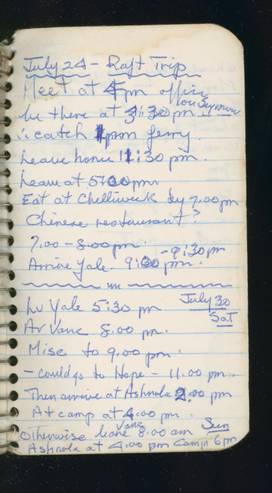 July 24 - Raft Trip
Meet at 4pm office
be there at 3:30 pm
& catch 1pm ferry.
Leave home 11:30 pm.
Leave at 5:00pm
Eat at Chelliwick by 7.00pm
Chinese restaurant?
7.00 - 8.00pm. - 9:30pm
Arrive Yale. 9:00 pm.
July 30
Lv Yale 5:30 pm Sat
Ar Vanc 8.00 pm.
Mise to 9.00 pm.
- could go to Hope - 11.00 pm.
Then arrive at Ashnola 2.00 pm
At camp at 4:00 pm.
Otherwise leave Vanc 8.00 am Sun
Ashnola at 4.00 pm Camp 6pm